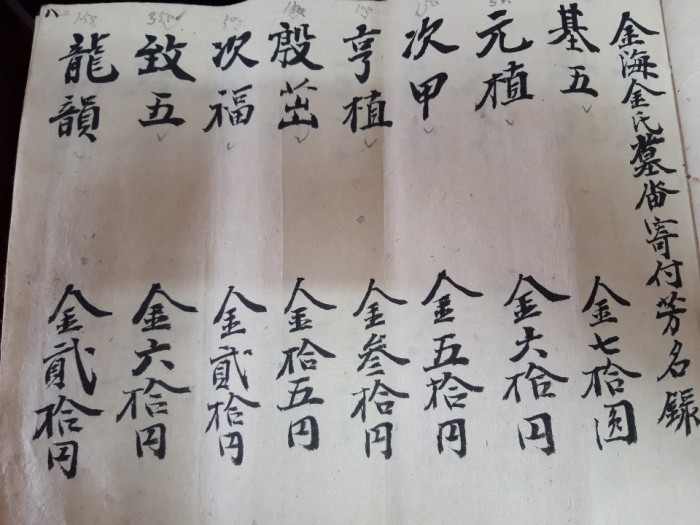 金海金氏墓畓寄付芳名錄
基五 金七拾圓
元植 金六拾円
次甲 金五拾円
亨植 金叄拾円
殷茁 金拾五円
次福 金貳拾円
致五 金六拾円
龍韻 金貳拾円